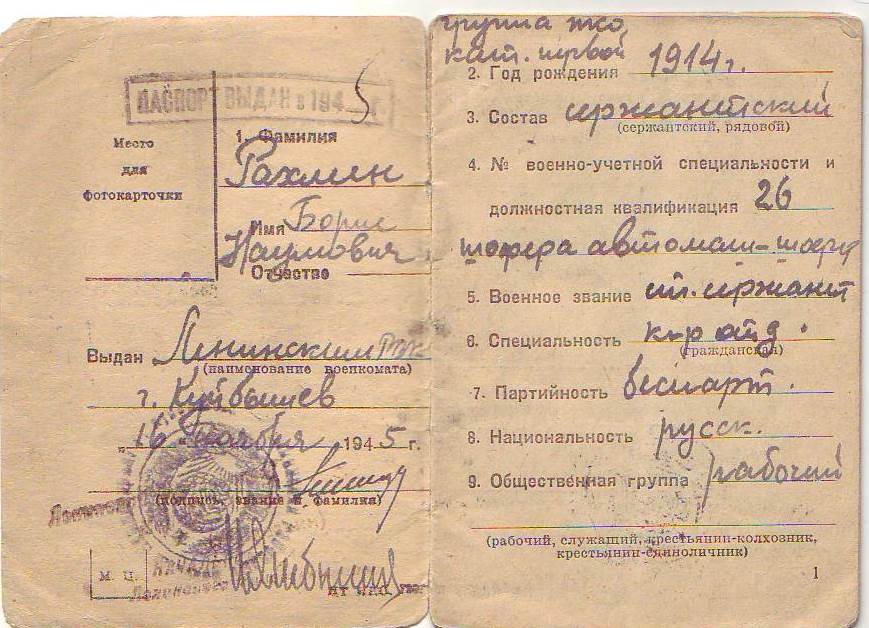 ПАСПОРТ ВЫДАН в 1945 г.
Место
для
фотокарточки
1. Фамилия
Рахмин
Имя Борис
Наумович
Отчество
Выдан Ленинским РВК
(наименование военкомата)
г. Куйбышев
„16" ноября 1945 г.
(подпись, звание и фамилия)
М. П.
группа
кат. первой
2. Год рождения 1914 г.
3. Состав сержантский
(сержантский, рядовой)
4. № военно-учетной специальности и
должностная квалификация 26
шофера автомаш–шофер
5. Военное звание ст. сержант
6. Специальность
(гражданская)
7. Партийность беспарт.
8. Национальность русск.
9. Общественная группа рабочий
(рабочий, служащий, крестьянин-колхозник,
крестьянин-единоличник)
1